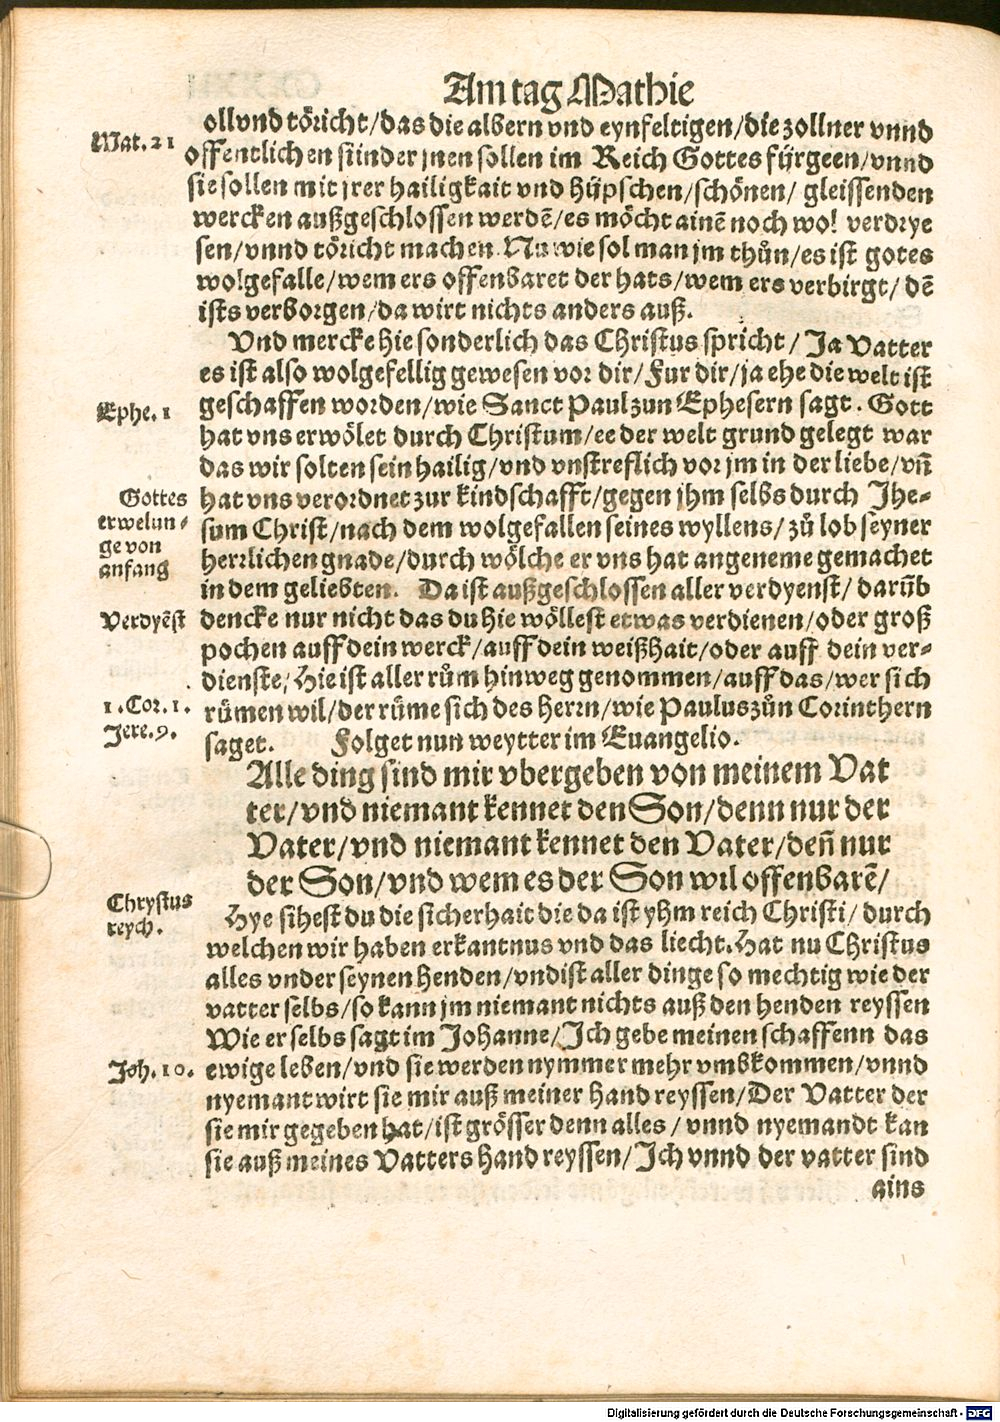 Am tag Mathie
oll vnd töricht/das die albern vnd eynfeltigen/die zollner vnnd
Mat. 21
offentlichen sünder jnen sollen im Reich Gottes fürgeen/vnnd
sie sollen mit jrer hailigkait vnd hüpschen/schönen/ gleissenden
wercken außgeschlossen werdē/es möcht ainē noch wol verdrye
sen/vnnd töricht machen. Nu wie sol man jm thůn/es ist gotes
wolgefalle/wem ers offenbaret der hats/wem ers verbirgt/ dē
ists verborgen/da wirt nichts anders auß.
Vnd mercke hie sonderlich das Christus spricht/ Ja Vatter
es ist also wolgefellig gewesen vor dir/Fur dir/ja ehe die welt ist
Ephe. 1
geschaffen worden/wie Sanct Paul zun Ephesern sagt. Gott
hat vns erwölet durch Christum/ee der welt grund gelegt war
das wir solten sein hailig/vnd vnstreflich vor jm in der liebe/vn̄
Gottes
erwelun-
ge von
anfang
hat vns verordnet zur kindschafft/gegen jhm selbs durch Jhe-
sum Christ/nach dem wolgefallen seines wyllens/zů lob seyner
herrlichen gnade/durch wölche er vns hat angeneme gemachet
in dem geliebten. Da ist außgeschlossen aller verdyenst/ darūb
Verdyēst
dencke nur nicht das du hie wöllest etwas verdienen/oder groß
pochen auff dein werck/auff dein weißhait/oder auff dein ver-
dienste/Hie ist aller rům hinweg genommen/auff das/wer sich
1. Cor. 1.
Jere. 9.
rümen wil/der rüme sich des Herrn/wie Paulus zůn Corinthern
saget. Folget nun weytter im Euangelio.
Alle ding sind mir vbergeben von meinem Vat
ter/vnd niemant kennet den Son/denn nur der
Vater/vnd niemant kennet den Vater/den̄ nur
der Son/vnd wem es der Son wil offenbarē/
Chrystus
reych.
Hye sihest du die sicherhait die da ist yhm reich Christi/ durch
welchen wir haben erkantnus vnd das liecht. Hat nu Christus
alles vnder seynen henden/vnd ist aller dinge so mechtig wie der
vatter selbs/so kann jm niemant nichts auß den henden reyssen
Wie er selbs sagt im Johanne/Ich gebe meinen schaffenn das
Joh. 10.
ewige leben/vnd sie werden nymmer mehr vmbkommen/vnnd
nyemant wirt sie mir auß meiner hand reyssen/Der Vatter der
sie mir gegeben hat/ist grösser denn alles/ vnnd nyemandt kan
sie auß meines Vatters hand reyssen/Ich vnnd der vatter sind
ains
Digitalisierung gefördert durch die Deutsche Forschungsgemeinschaft - DFG